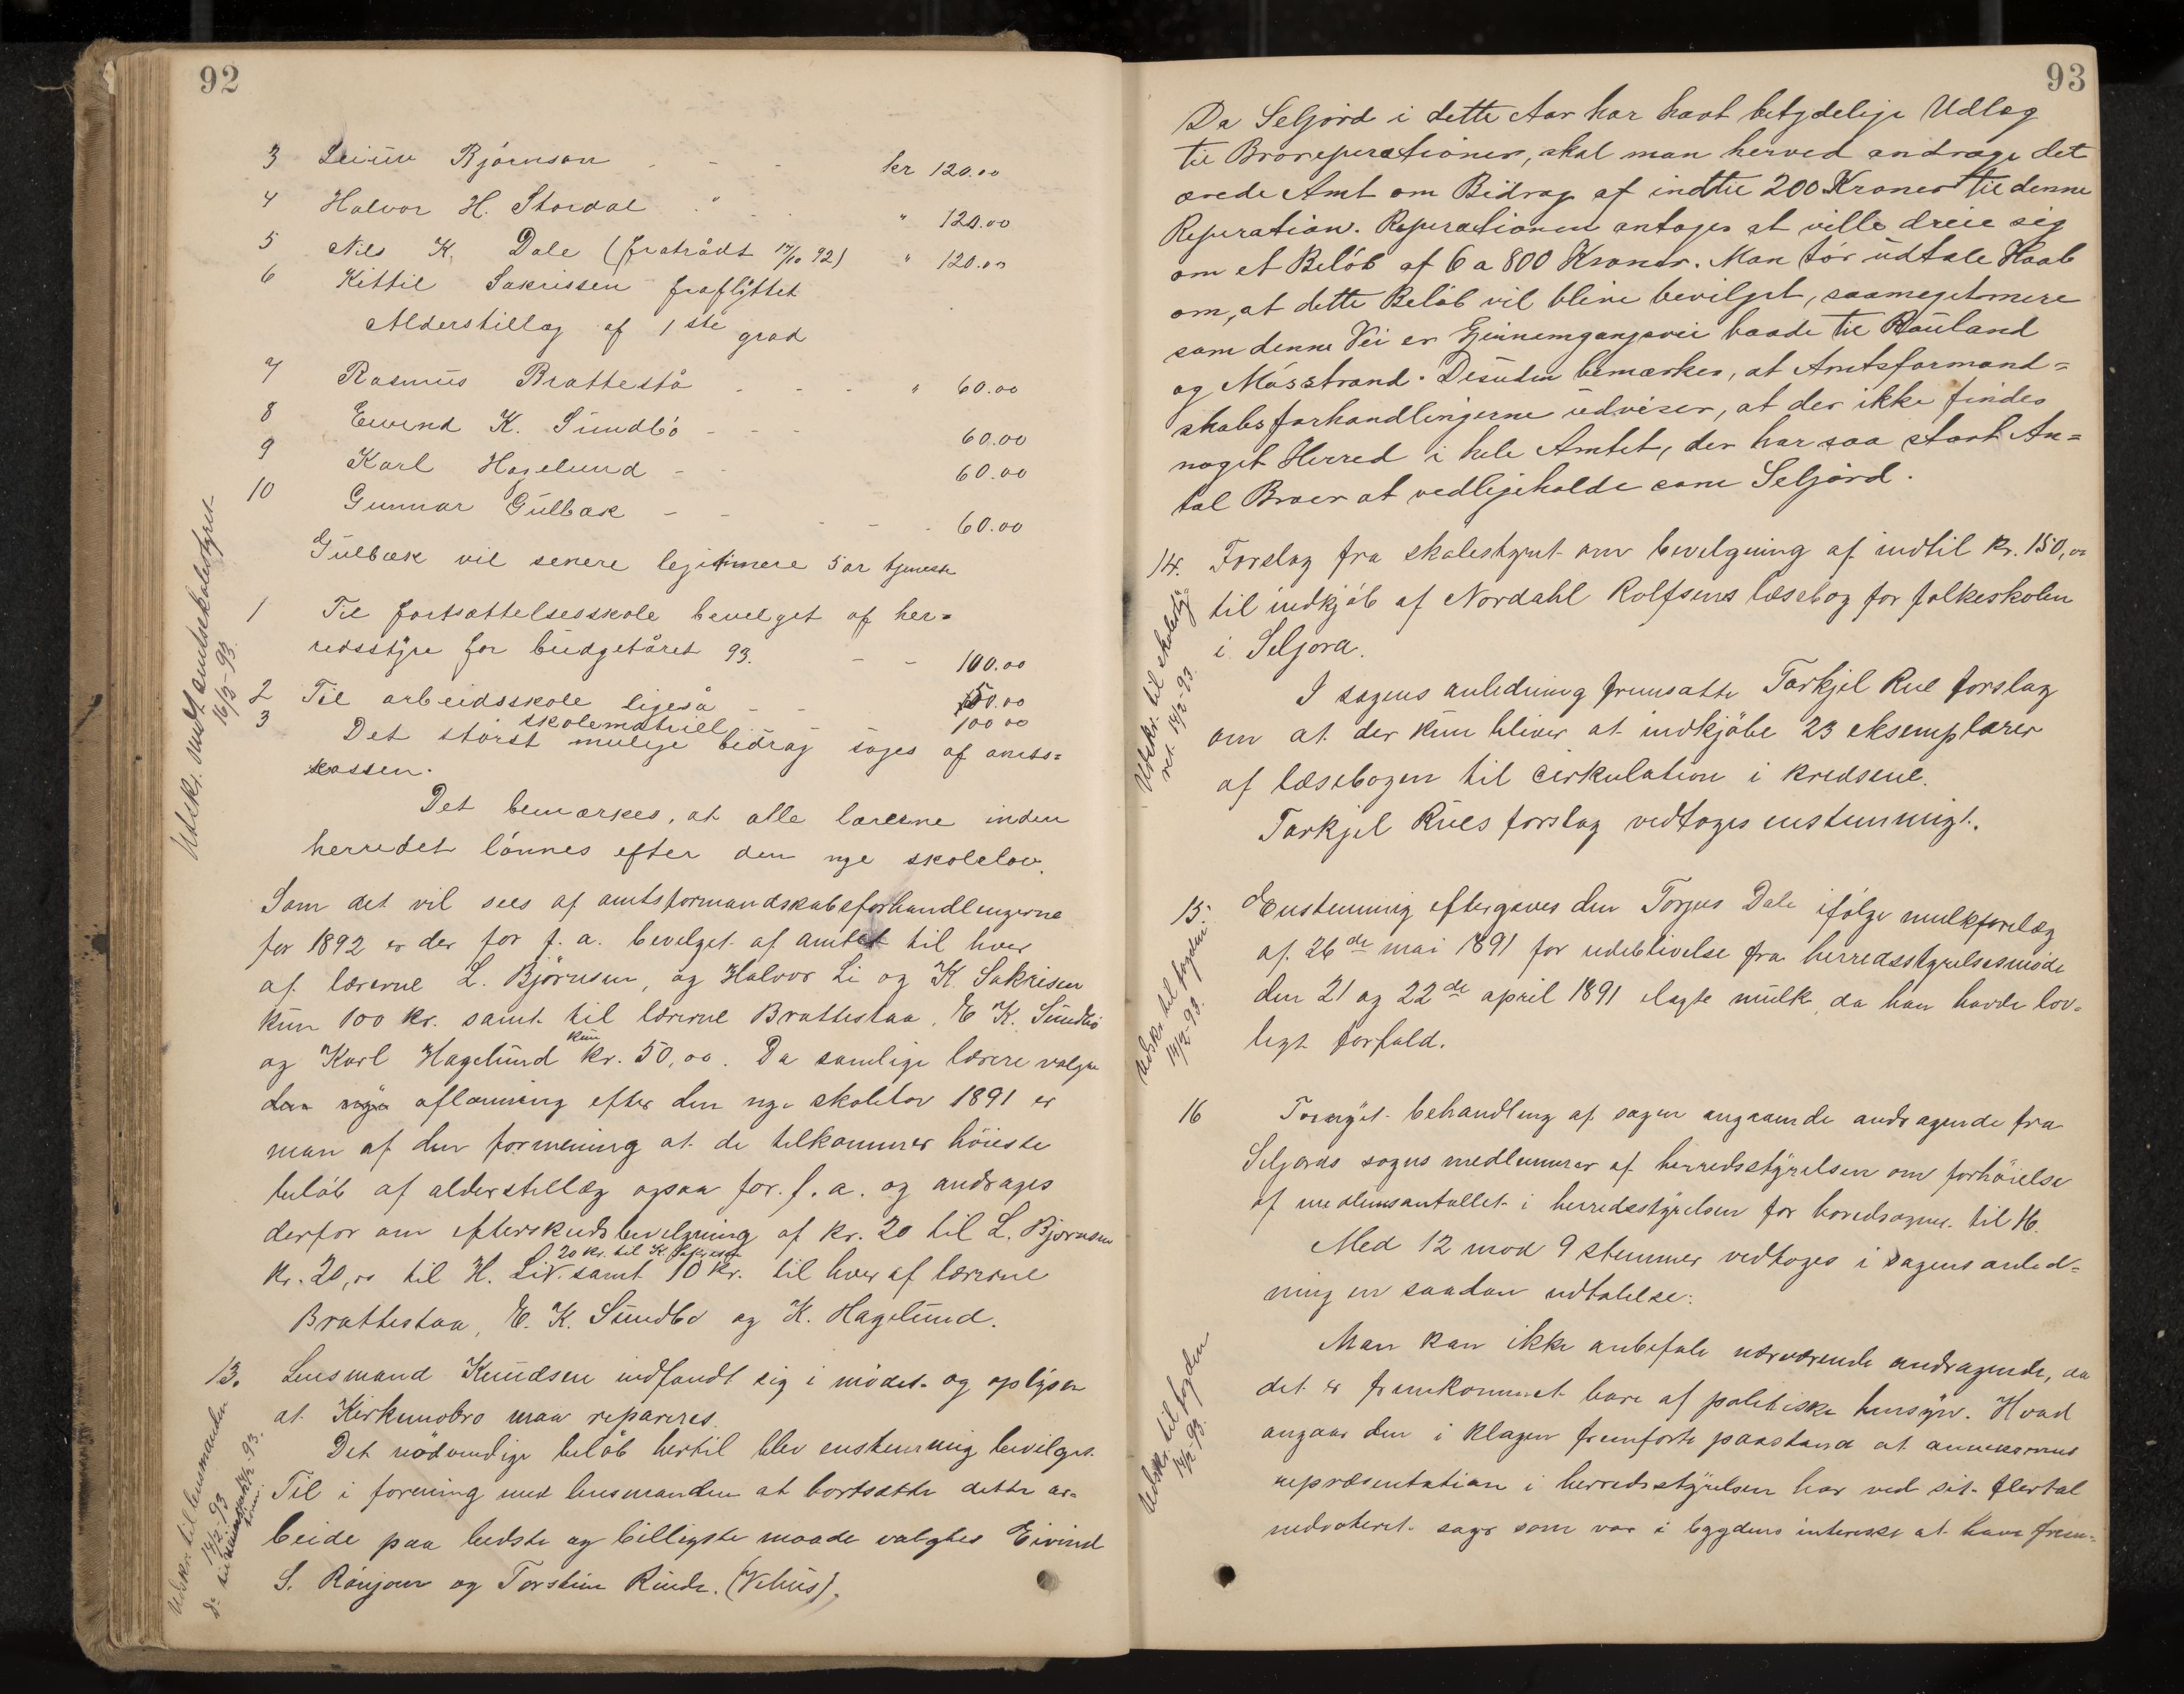 92
3 Leiuv Björnson - - - kr 120.00
4 Halvor H. Stordal " - - " 120.00
5 Nils K. Dale (fratrådt 17/10 92) " 120.00
6 Kittil Sakrissen fraflyttet
Alderstillæg af 1ste grad
7 Rasmus Brattestå - - - " 60.00
8 Eivend K. Sundbö - - - 60.00
9 Karl Hagelund - - 60.00
10 Gunnar Gulbæk - - - - - 60.00
Gulbæk vil senere legitimere 5 år tjeneste
1 Til fortsættelsesskole bevilget af her=
redsstyre for budgetåret 93. - - 100.00
2 Til arbeidsskole ligeså - - 50.00
skolematriel 100 00
3 Det störst mulige bidrag söges af amts=
kassen.
Det bemærkes, at alle lærerne inden
herredet lönnes efter den nye skolelov.
Udskr. sendt amtsskolestyret
16/2-93.
Som det vil sees af amtsformandskabsforhandlingerne
for 1892 er der for f. a. bevilget af amtet til hver
af lærerne L. Björnsen, og Halvor Li og K. Sakrisen
kun 100 kr. samt til lærerne Brattestaa, E K. Sundbö
og Karl Hagelund kun kr. 50,00. Da samlige lærere valgte
den nye aflønning efter den nye skolelov 1891 er
man af den formening at de tilkommer höieste
belöb af alderstillæg ogsaa for f. a. og andrages
derfor om efterskudsbevilgning af kr. 20 til L. Bjørnsen
20 kr. til K. Sakrisen
kr. 20,00 til H. Li samt 10 kr. til hver af lærerne
Brattestaa, E. K. Sundbö og K. Hagelund.
13. Lensmand Knudsen indfandt sig i mödet og oplyser
at Kirkemobro maa repareres.
Det nödvendige belöb hertil blev enstemmig bevilget.
Til i forening med lensmanden at bortsætte dette ar=
beide paa bedste og billigste maade valgtes Eivind
S. Rönjom og Torstein Rinde. (Vehus).
Udskr. til lensmanden
14/2-93
93
Da Seljord i dette Aar har havt betydelige Udlæg
til Broreperationer, skal man herved andrage det
ærede Amt om Bidrag af indtil 200 Kroner til denne
Reperation. Reperationen antages at ville dreie sig
om et Beløb af 6 a 800 Kroner. Man tör udtale Haab
om, at dette Beløb vil blive bevilget, saameget mere
som denne Vei er Gjennemgangsvei baade til Rauland
og Mösstrand. Desuden bemærkes, at Amtsformand=
skabsforhandlingerne udviser, at der ikke findes
noget Herred i hele Amtet, der har saa stort An=
tal Broer at vedligeholde som Seljord.
14. Forslag fra skolestyret om bevilgning af indtil kr. 150,00
til indkjöb af Nordahl Rolfsens læsebog for folkeskolen
i Seljord.
I sagens anledning fremsatte Tarkjel Rue forslag
om at der kun bliver at indkjöbe 23 eksemplarer
af læsebogen til cirkulation i kredsene.
Tarkjel Rues forslag vedtoges enstemmigt.
Udskr. til skolesty-
ret 14/2-93.
15. Enstemmig eftergaves den Torjus Dale ifölge mulktforelæg
af 26de mai 1891 for udeblivelse fra herredsstyrelsesmöde
den 21 og 22de april 1891 ilagte mulkt, da han havde lov=
ligt forfald.
Udskr. til fogden
14/2-93.
16 Fornyet behandling af sagen angaaende andragende fra
Seljords sogns medlemmer af herredsstyrelsen om forhöielse
af medlemsantallet i herredsstyrelsen for hovedsognet til 16.
Med 12 mod 9 stemmer vedtoges i sagens anled=
ning en saadan udtalelse:
Man kan ikke anbefale nærværende andragende, da
det er fremkommet bare af politiske hensyn. Hvad
angaar den i klagen fremförte paastand at annekserne
repræsentation i herredsstyrelsen har ved sit flertal
nedvoteret sager som var i bygdens interesse at have frem=
Udskr. til fogden
14/2-93.